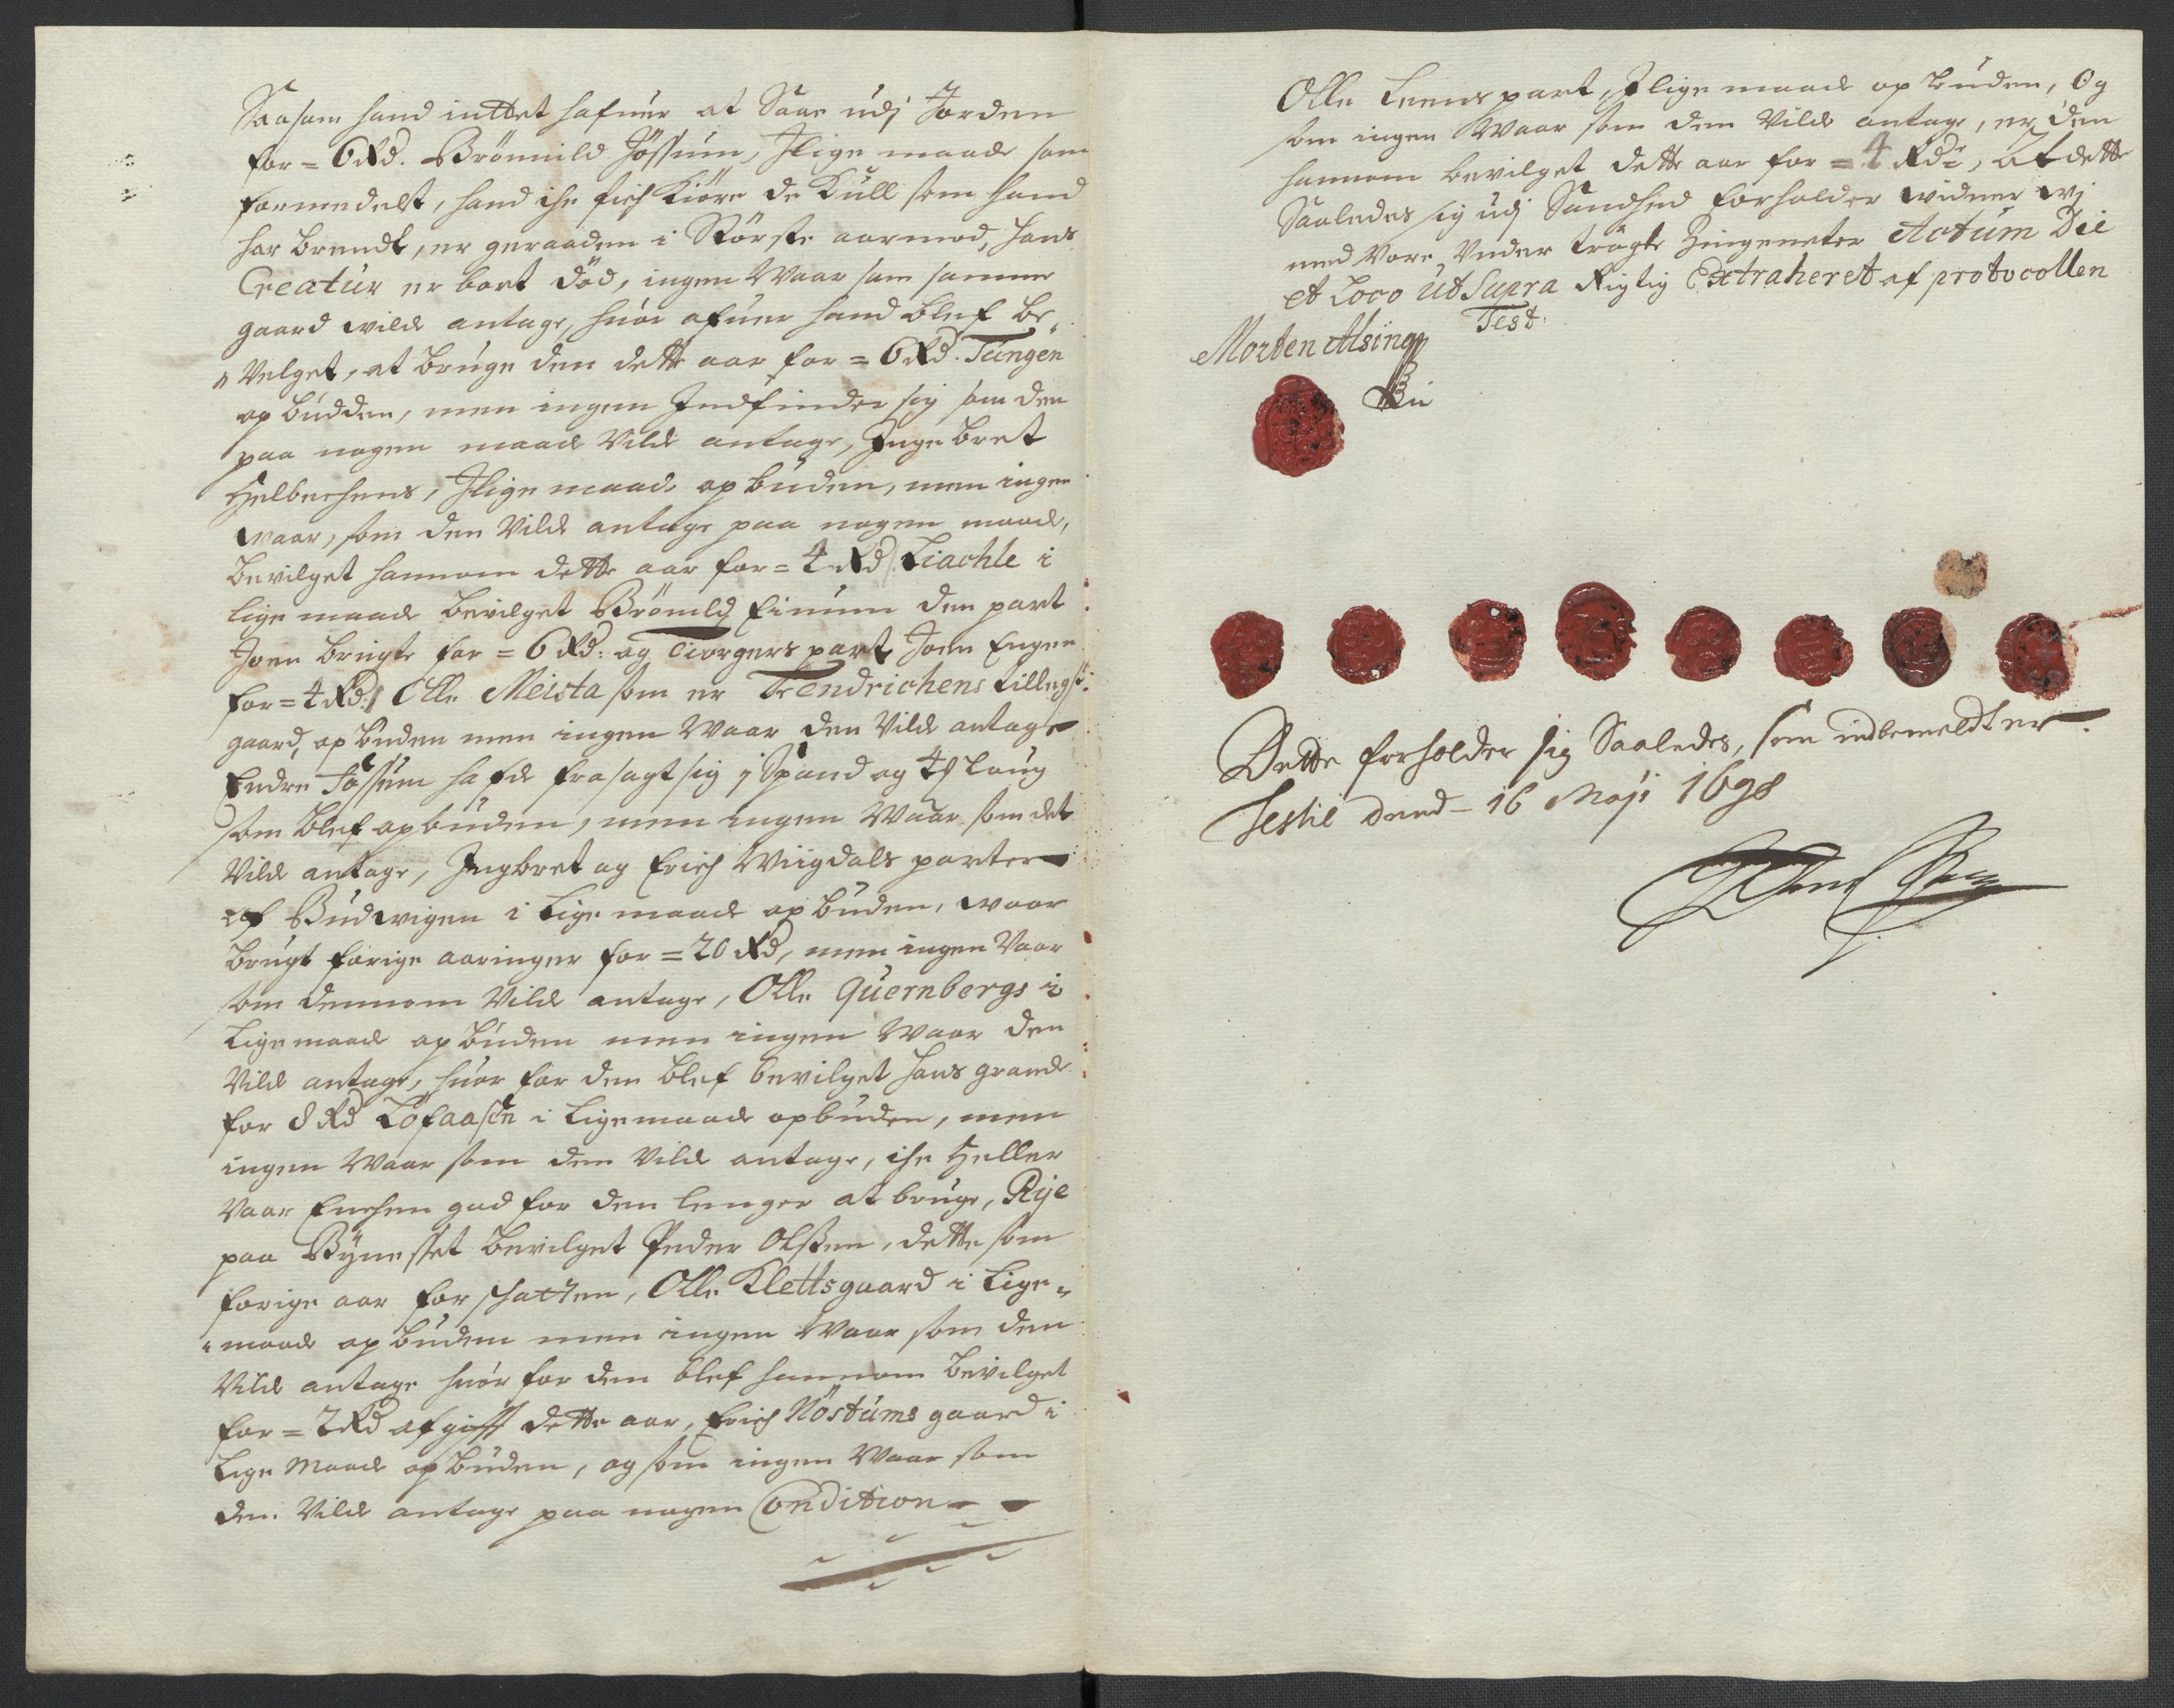 Saasom hand inttet hafuer at Saae udj Jorden
for = 6 Rd. Brönnild Jössum, J lige maade som
formedelst, hand iche fich Kiöre de Kull som hand
har brendt, er geraaden i Störste aarmod, hans
Creatur er bort död, ingen Waar som samme
gaard wilde antage, huor ofuer hand blef be„
„ Velget, at bruge den dette aar for = 6 Rd. Tungen
op budden, men ingen Indfinder sig som den
paa nogen maade Vilde antage, Ingebret
Helbechens, J lige maade op buden, men ingen
waar, som den Vilde antage paa nogen maade,
bevilget hannom dette aar for = 4 Rd / Liachle i
lige maade bevilget Brönild Einum den part
Joen brugte for = 6 Rd: og Tiorgers part Joen Engen
for = 4 Rd: / Olle Meista som er Trendrichens tillegs
gaard, op buden men ingen Waar den Vilde antage
Endre Fossum hafde frasagt sig j Spand og laug
som blef op buden, men ingen Waar som det
Vilde antage, Ingbret og Erich Wiigdals parter
af Budwigen i Lige maade op buden, waar
brugt forige aaringer for = 20 Rd, men ingen Vaar
som dennom Vilde antage, Olle Quernbergs i
Lige maade op buden men ingen Waar den
Vilde antage, huor for den blef bevilget hans grande
for 8 Rd Löfaasen i Ligemaade opbuden, men
ingen Waar som den Vilde antage, iche heller
Vaar Enchen god for den lenger at bruge, Rye
paa Bynesset bevilget Peder Olssen, dette som
forige aar for schatten, Olle Kletts gaard i Lige„
„maade op buden men ingen Waar som den
Vilde antage huor for den blef hannom bevilget
for = 2 Rd afgifft dette aar, Erich Nöstums gaard i
Lige Maade op buden, og som ingen Waar som
den Vilde antage paa nogen Condition
Olle Leens part, J lige maade op buden, Og
som ingen Waar som den Vilde antage, er den
hannom bevilget dette aar for = 4 Rdr, At dette
Saaledes sig udj Sandhed forholder widner wj
med Vore Under trögte Zingeneter Actum Die
et Loco ut Supra Rigtig Extraheret af protocollen
Test:
Morten Alsing
Dette forholder sig Saaledes, som indbemeldt er.
Testil dend 16 Maji 1698